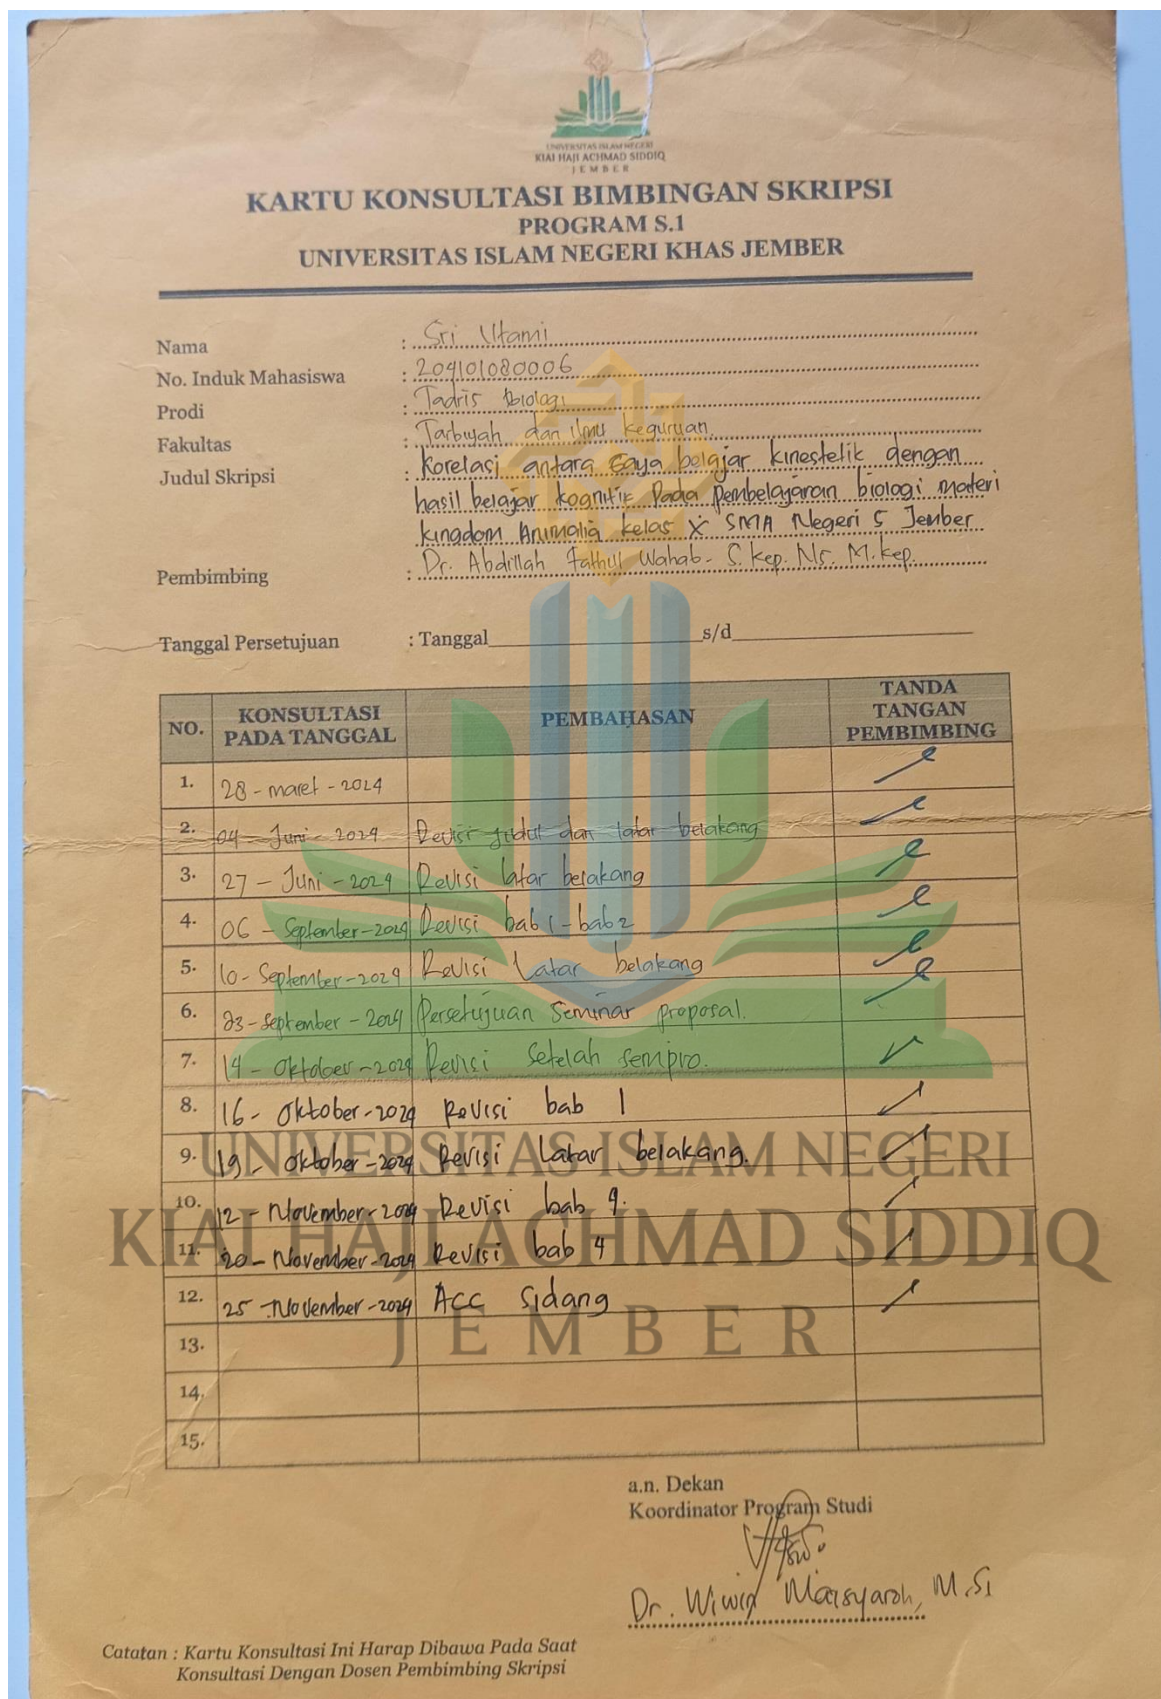 UNIVERSITAS ISLAM NEGERI
KIAI HAJI ACHMAD SIDDIQ
JEMBER
KARTU KONSULTASI BIMBINGAN SKRIPSI
PROGRAM S.1
UNIVERSITAS ISLAM NEGERI KHAS JEMBER
Nama : Sri Utami
No. Induk Mahasiswa : 204101080006
Prodi : Tadris Biologi
Fakultas : Tarbiyah dan ilmu keguruan.
Judul Skripsi : Korelasi antara gaya belajar kinestetik dengan
hasil belajar kognitif Pada pembelajaran biologi materi
kingdom Animalia kelas X SMA Negeri 5 Jember
Pembimbing : Dr. Abdillah Fathul Wahab. S.Kep. Ns. M.kep.
Tanggal Persetujuan : Tanggal s/d
NO. KONSULTASI PADA TANGGAL PEMBAHASAN TANDA TANGAN PEMBIMBING
1. 28 - maret - 2024
2. 04 - Juni - 2024 Revisi judul dan latar belakang
3. 27 - Juni - 2024 Revisi latar belakang
4. 06 - September - 2024 Revisi bab 1 - bab 2
5. 10 - September - 2024 Revisi Latar belakang
6. 23 - September - 2024 Persetujuan Seminar proposal.
7. 14 - Oktober - 2024 Revisi Setelah sempro.
8. 16 - Oktober - 2024 Revisi bab 1
9. 19 - Oktober - 2024 Revisi Latar belakang.
10. 12 - November - 2024 Revisi bab 4.
11. 20 - November - 2024 Revisi bab 4
12. 25 - November - 2024 ACC Sidang
13.
14.
15.
UNIVERSITAS ISLAM NEGERI
KIAI HAJI ACHMAD SIDDIQ
JEMBER
a.n. Dekan
Koordinator Program Studi
Dr. Wiwin Maisyaroh, M.Si
Catatan : Kartu Konsultasi Ini Harap Dibawa Pada Saat
Konsultasi Dengan Dosen Pembimbing Skripsi